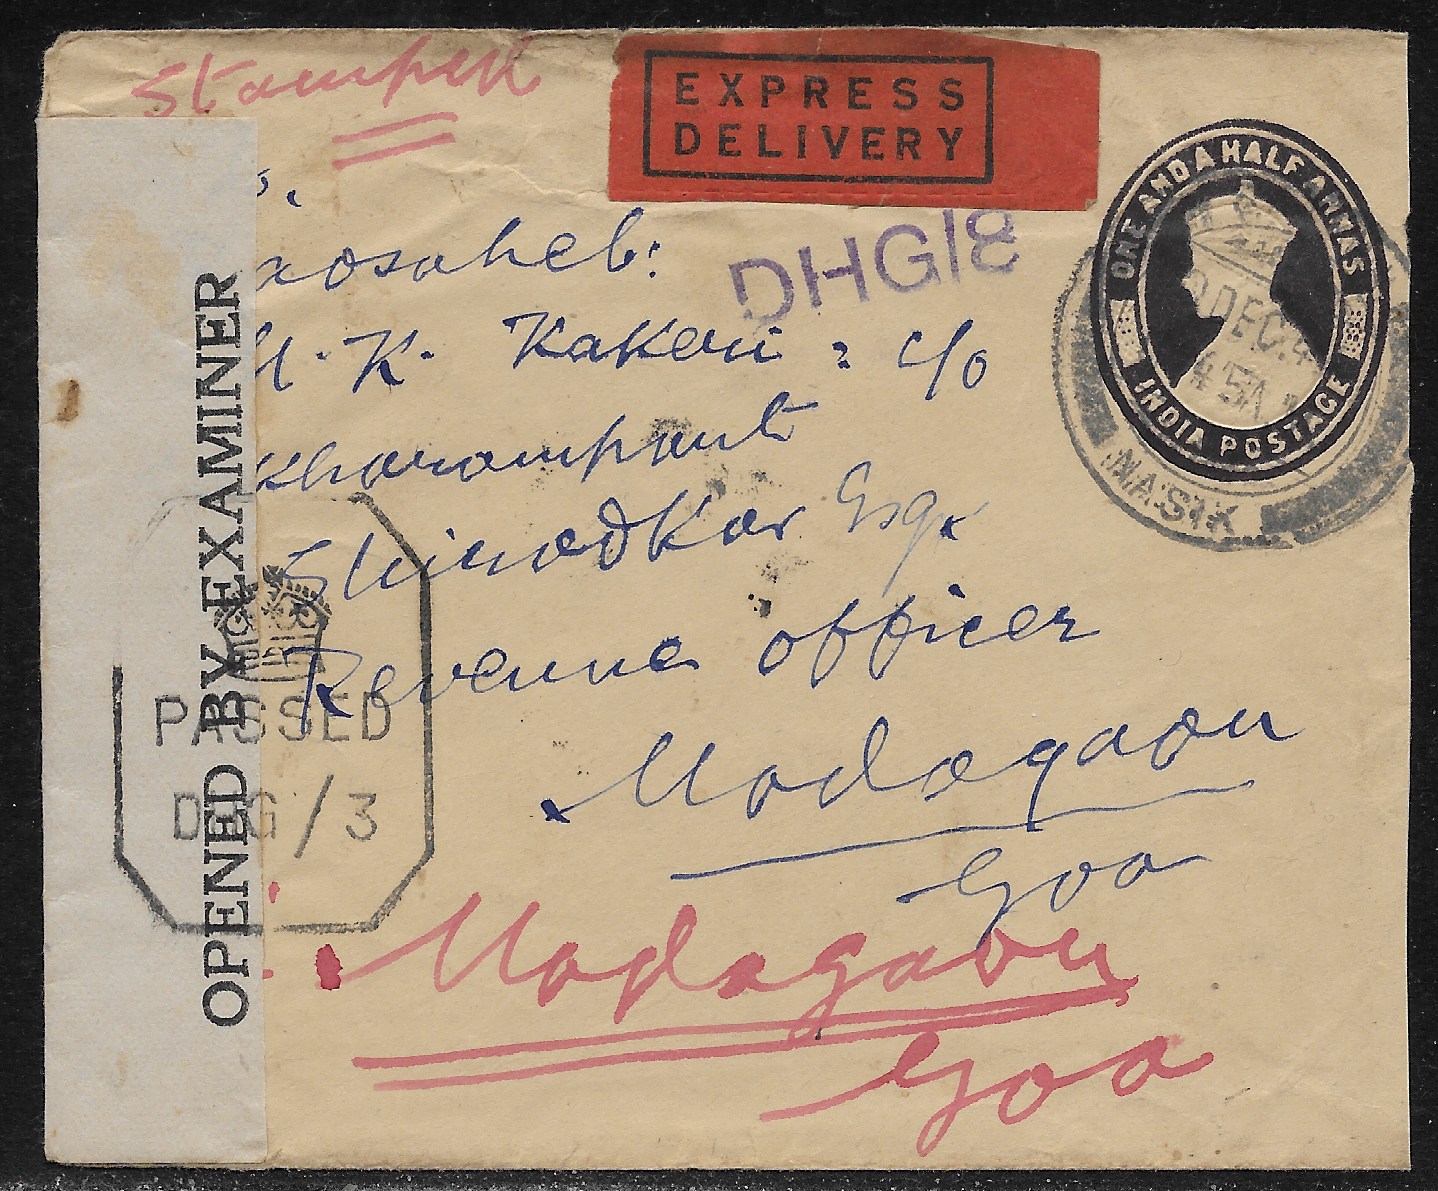 Stamped
EXPRESS
DELIVERY
ONE AND A HALF ANNAS
INDIA POSTAGE
DEC.4
NASIK
DHG/8
aosaheb:
K. Kakeri : c/o
kharampant
Shirodkar Esq.
Revenue officer
Madagaon
Goa
OPENED BY EXAMINER
PASSED
D G / 3
Madagaon
Goa